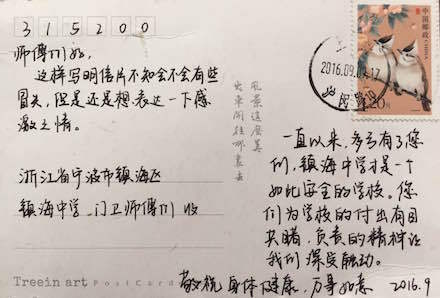 315200
师傅们好，
这样写明信片不知会不会有些
冒失，但是还是想表达一下感
激之情。
浙江省宁波市镇海区
镇海中学 门卫师傅们 收
Treein art PostCard
风景这麽美
中国邮政
CHINA
2016.09.
17
20分
一直以来，多亏有了您
们，镇海中学才是一个
如此安全的学校。您
们为学校的付出有目
共睹，负责的精神让
我们深受触动。
敬祝 身体健康，万事如意 2016.9